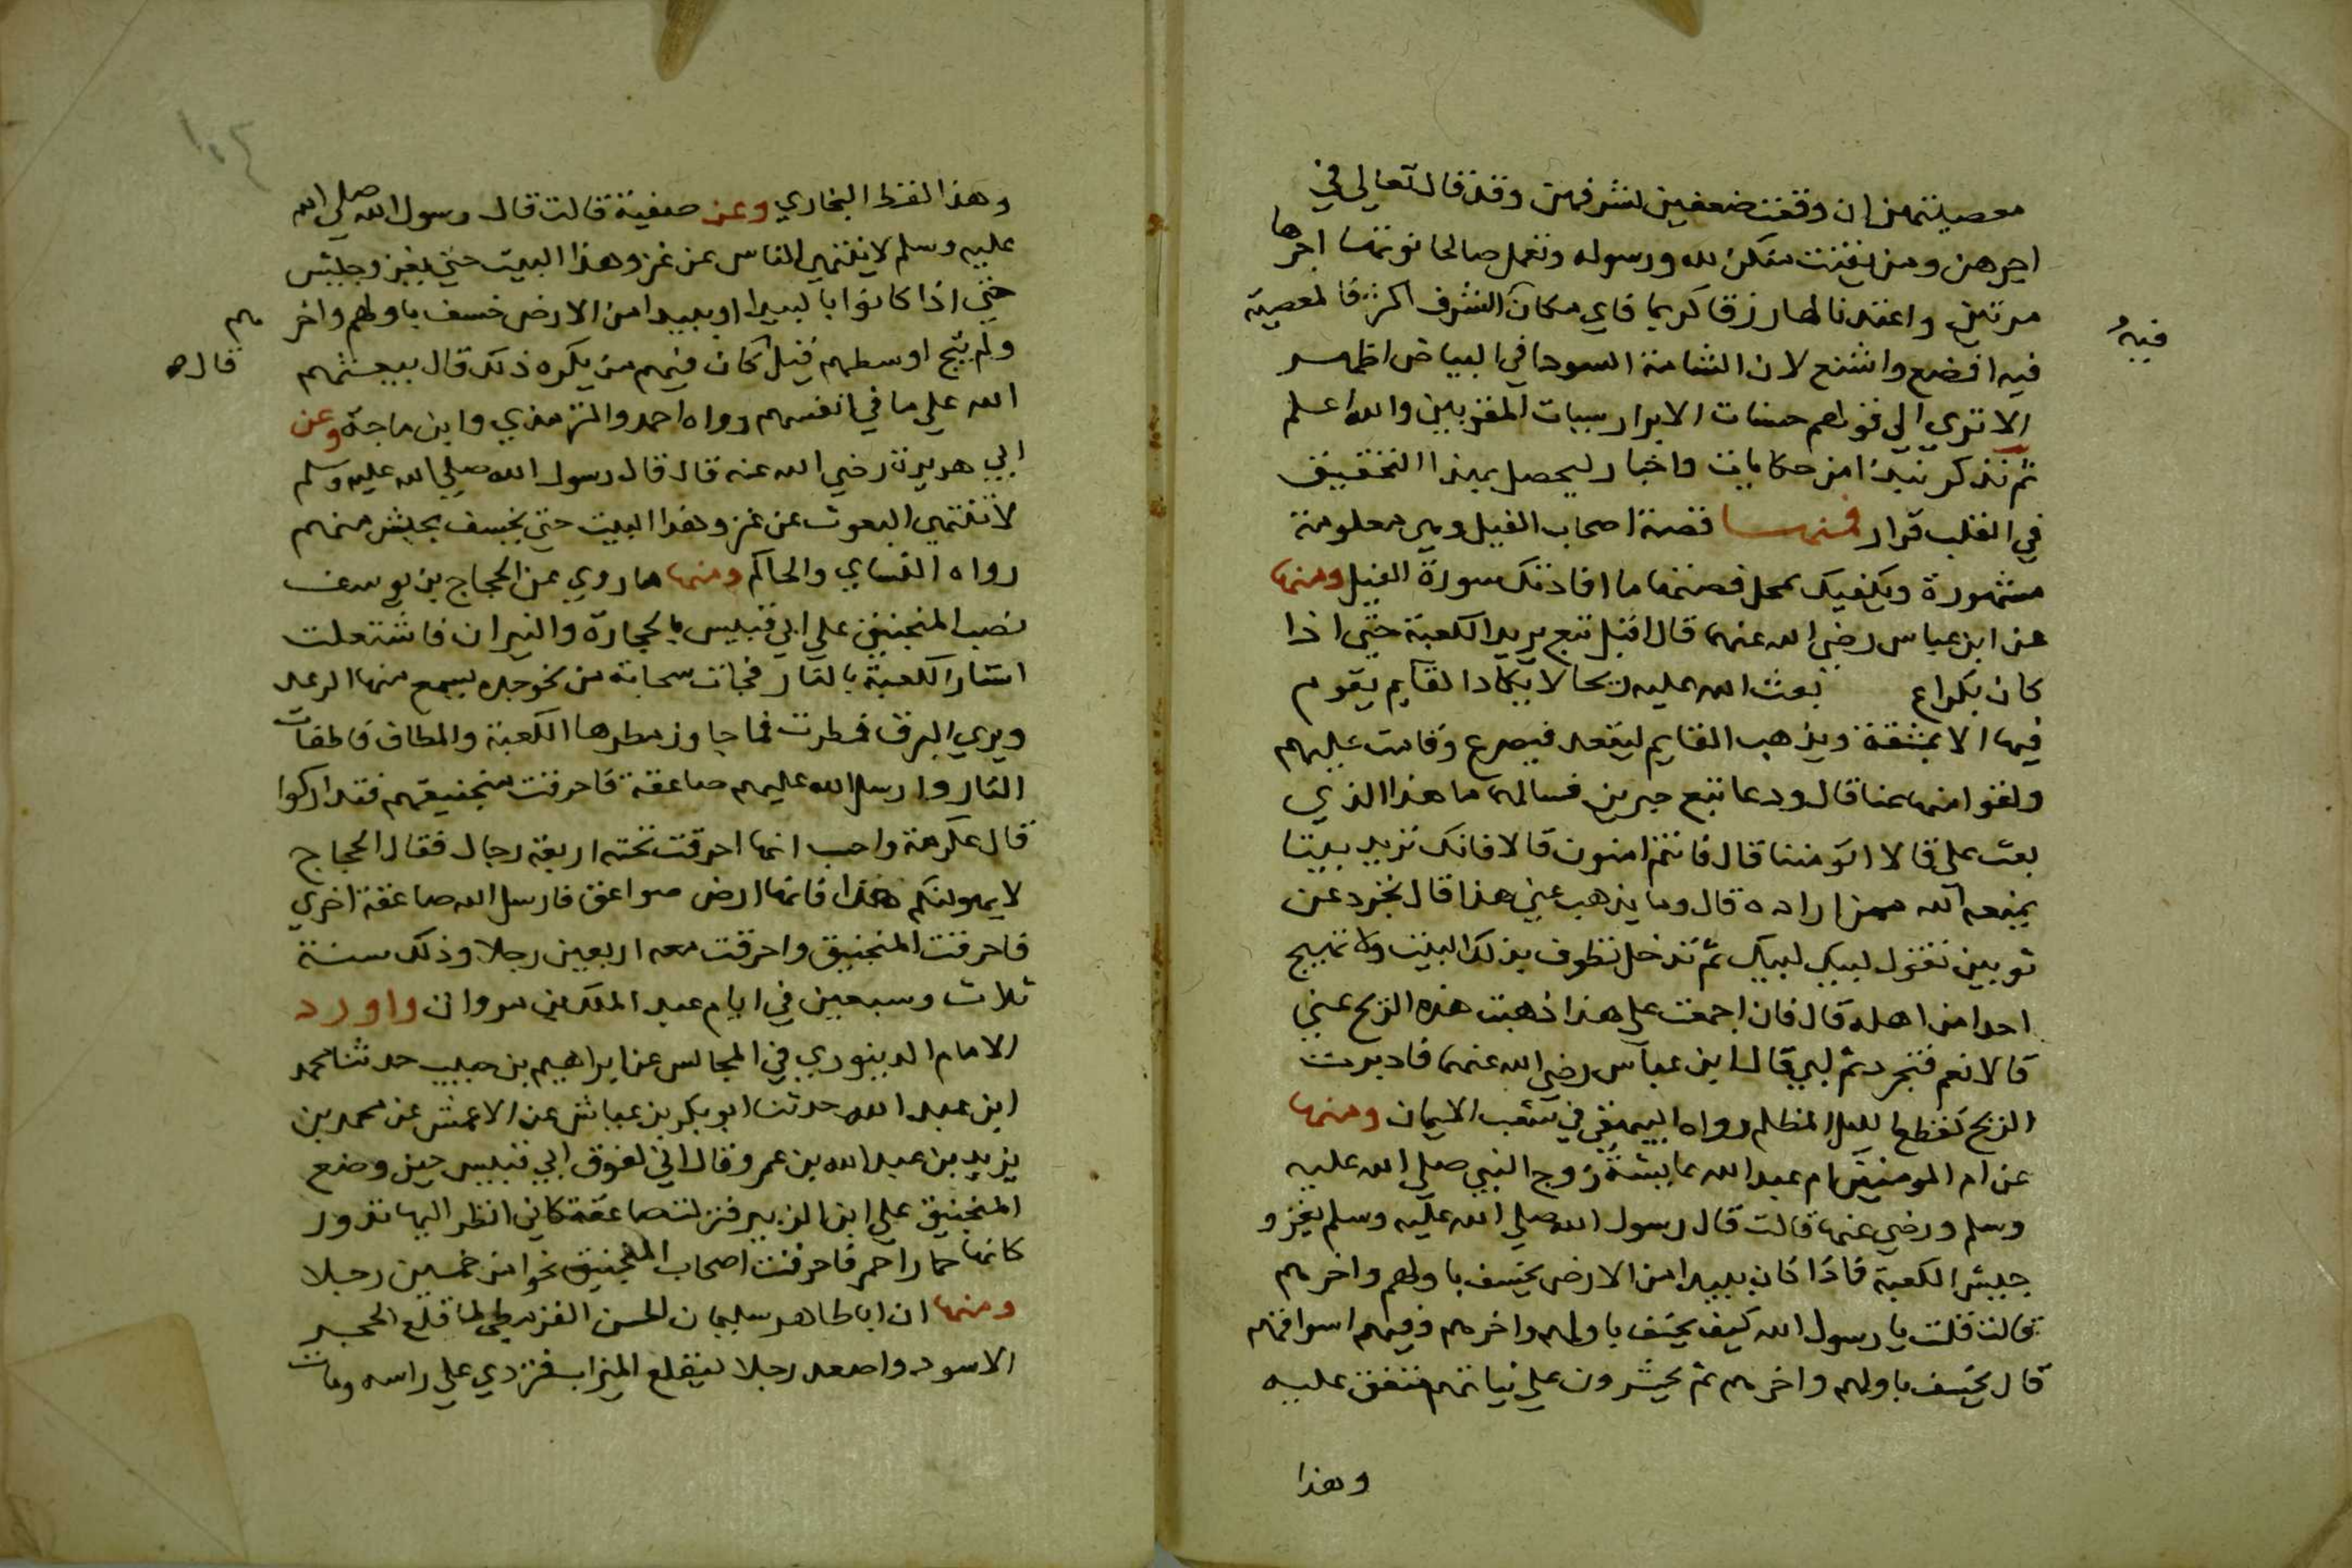 معصيتهن ان وقعت ضعفين لشرفهن وقد قال تعالي في
اجرهن ومن يقنت منكن لله ورسوله وتعمل صالحا نوتها اجرها
مرتين واعتدنا لها رزقا كريما فاي مكان الشرف اكثر فالمعصية
فيه افضع واشنع لان الشامة السودا في البياض اظهر
فيه
الا تري الي قولهم حسنات الابرار سيات المقربين والله اعلم
ثم نذكر نبذا من حكايات واخبار ليحصل بهذا التحقيق
في القلب قرار فمنها قصة اصحاب الفيل وهي معلومة
مشهورة ويكفيك بمحل قصتها ما افادتك سورة الفيل ومنها
عن ابن عباس رضي الله عنهما قال اقبل تبع يريد الكعبة حتي اذا
كان بكراع بعث الله عليه ريحا لا يكاد القايم يقوم
فيها الا بمشقة ويذهب القايم ليقعد فيصرع وقامت عليهم
ولقوا منها عنا قال ودعا تبع حبرين فسالهما ما هذا الذي
بعث علي قالا اتومننا قال فانتم امنون قالا فانك تريد بيتا
يمنعه الله ممن اراده قال وما يذهب عني هذا قال تجرد عن
ثوبين تقول لبيك لبيك ثم تدخل تطوف بذلك البيت ولا تهيج
احدا من اهله قال فان اجمعت علي هذا ذهبت هذه الريح عني
قالا نعم فتجرد ثم لبي قال ابن عباس رضي الله عنهما فادبرت
الريح كقطع الليل المظلم رواه البيهقي في شعب الايمان ومنها
عن ام المومنين ام عبد الله عايشة زوج النبي صلي الله عليه
وسلم ورضي عنها قالت قال رسول الله صلي الله عليه وسلم يغزو
جيش الكعبة فاذا كان ببيدا من الارض يخسف باولهم واخرهم
قالت قلت يا رسول الله كيف يخسف باولهم واخرهم وفيهم اسواقهم
قال يخسف باولهم واخرهم ثم يحشرون علي نياتهم متفق عليه
وهذا
١٠٣
وهذا لفظ البخاري وعن صفية قالت قال رسول الله صلي الله
عليه وسلم لا ينتهي الناس عن غزو هذا البيت حتي يغز وجيش
حتي اذا كانوا بالبيدا او ببيدا من الارض خسف باولهم واخر
هم
ولم ينج اوسطهم قيل كان فيهم من يكره ذلك قال يبعثهم
قاله
الله علي ما في انفسهم رواه احمد والترمذي وابن ماجة وعن
ابي هريرة رضي الله عنه قال قال رسول الله صلي الله عليه وسلم
لا تنتهي البعوث عن غزو هذا البيت حتي يخسف بجيش منهم
رواه النساي والحاكم ومنها ما روي عن الحجاج بن يوسف
نصب المنجنيق علي ابي قبيس بالحجارة والنيران فاشتعلت
استار الكعبة بالنار فجات سحابة من نحو جده يسمع منها الرعد
ويري البرق فمطرت فما جاوز مطرها الكعبة والمطاف فاطفات
النار وارسل الله عليهم صاعقة فاحرقت منجنيقهم فتداركوا
قال عكرمة واحسب انها احرقت تحته اربعة رجال فقال الحجاج
لا يهولنكم هذا فانها ارض صواعق فارسل الله صاعقة اخري
فاحرقت المنجنيق واحرقت معه اربعين رجلا وذلك سنة
ثلاث وسبعين في ايام عبد الملك بن مروان واورد
الامام الدينوري في المجالس عن ابراهيم بن حبيب حدثنا محمد
ابن عبد الله حدثنا ابو بكر بن عياش عن الاعمش عن محمد بن
يزيد بن عبد الله بن عمر وقال اني لفوق ابي قبيس حين وضع
المنجنيق علي ابن الزبير فنزلت صاعقة كاني انظر اليها تدور
كانها حمار احمر فاحرقت اصحاب المنجنيق نحوا من خمسين رجلا
ومنها ان ابا طاهر سليمان لحسن القرمطي لما قلع الحجر
الاسود واصعد رجلا ليقلع الميزاب فتردي علي راسه ومات